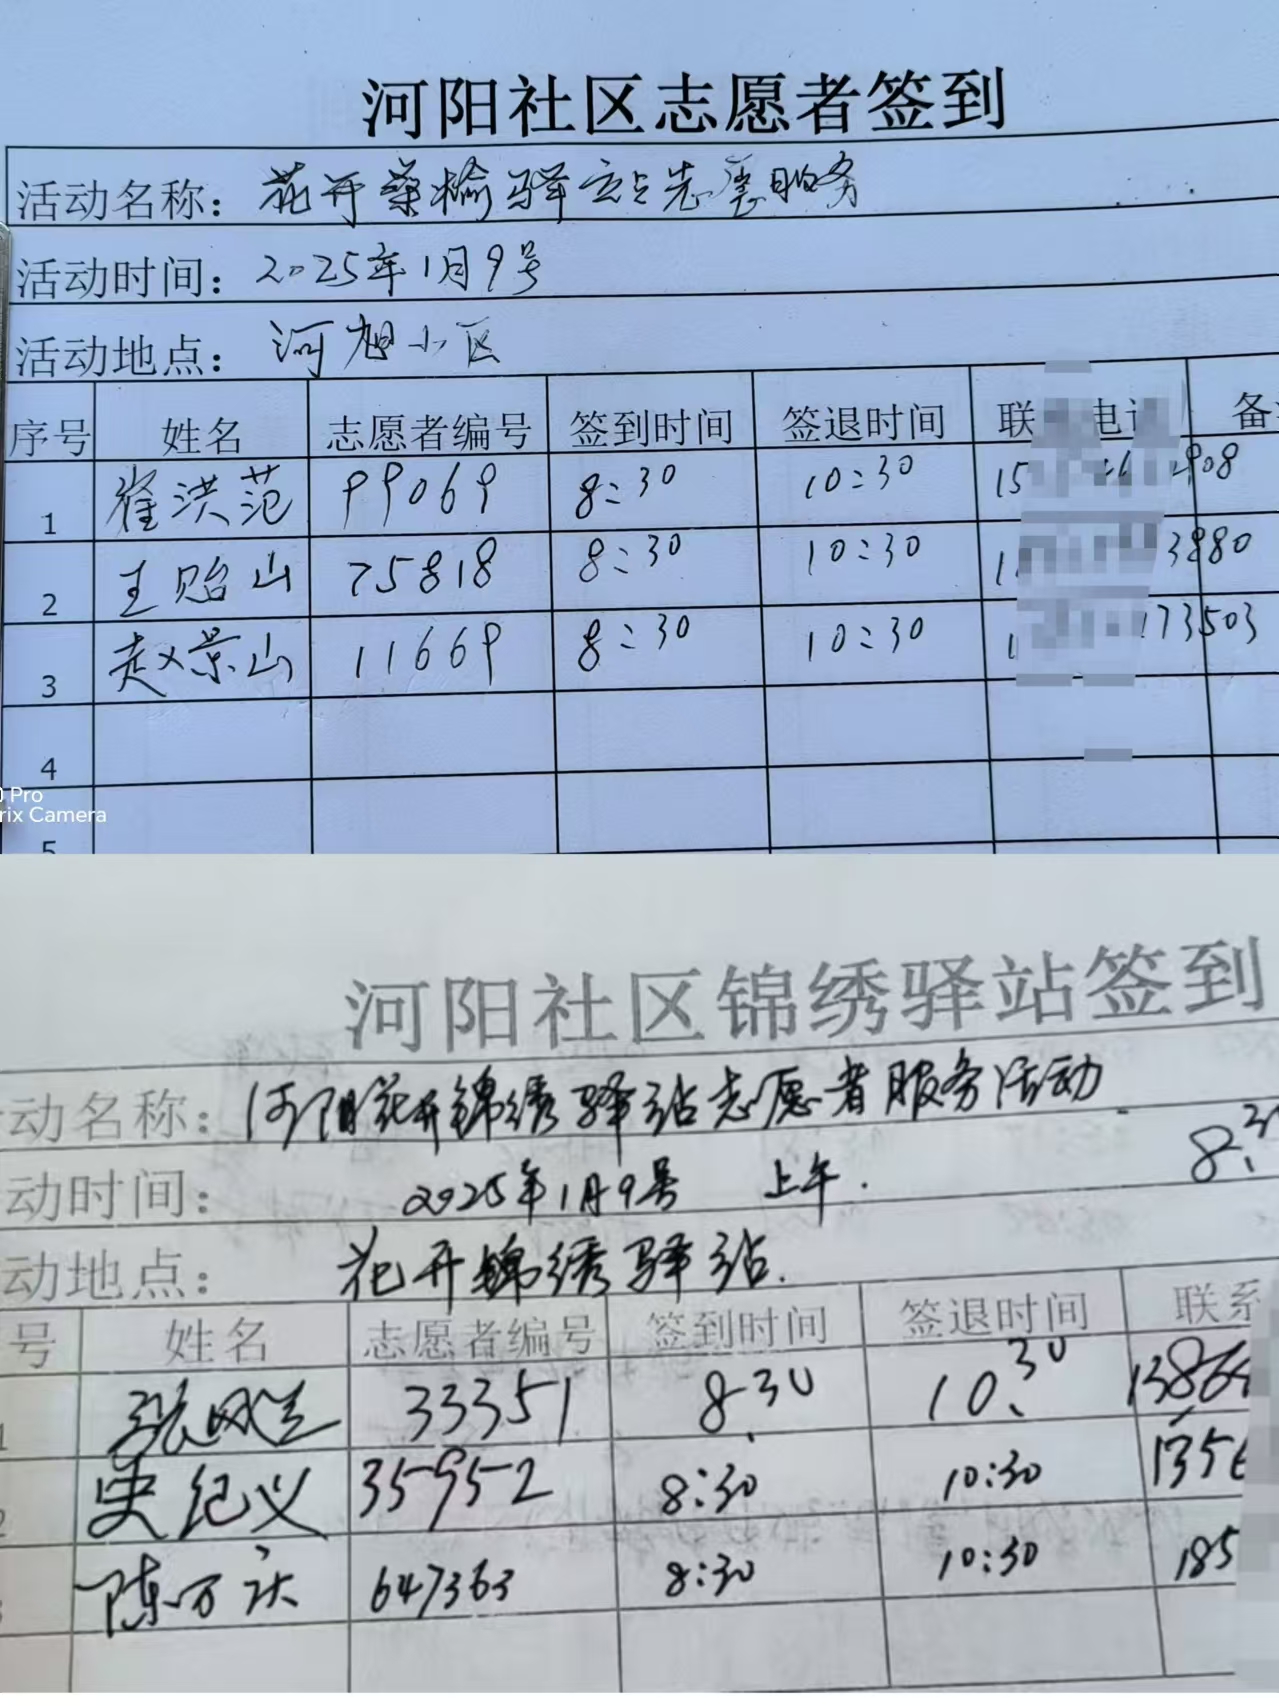 河阳社区志愿者签到
活动名称：花开桑榆驿站志愿服务
活动时间：2025年1月9号
活动地点：河旭小区
序号 姓名 志愿者编号 签到时间 签退时间 联 电话 备
1 崔洪范 99069 8:30 10:30 15 908
2 王贻山 75818 8:30 10:30 1 3880
3 赵景山 11669 8:30 10:30 1 173503
4
5
Pro
rix Camera
河阳社区锦绣驿站签到
动名称：河阳花开锦绣驿站志愿者服务活动
动时间：2025年1月9号 上午. 8:3
动地点：花开锦绣驿站.
号 姓名 志愿者编号 签到时间 签退时间 联系
1 张 33351 8:30 10:30 1386
2 史纪义 35952 8:30 10:30 1356
3 陈万庆 647363 8:30 10:30 185